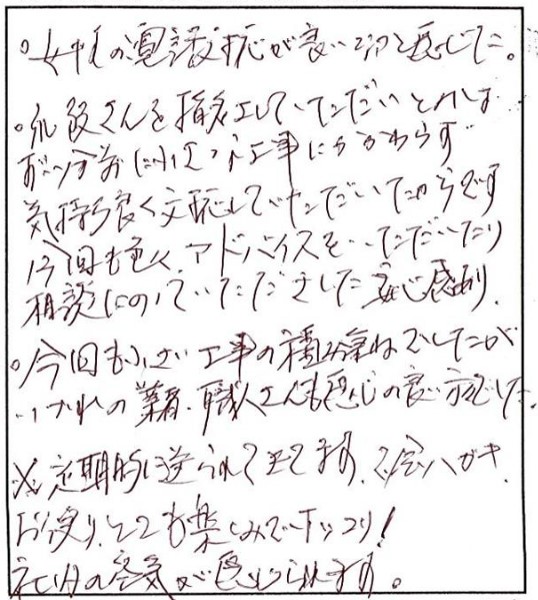 。女性の電話対応が良いなと感じた。
。さんを指名していただいと
小さな工事にかかわらず
気持ち良く交応していただいたからです
今回も色々アドバイスをいただいたり
相談にのっていただきました 感謝
。今回も小さい工事の積み重ねでしたが
いずれの業者、職人さんも感じの良い方でした。
※定期的に送られてきます、ハガキ、
お便り、とても楽しみでホッコリ!
社内の空気が感じられます。